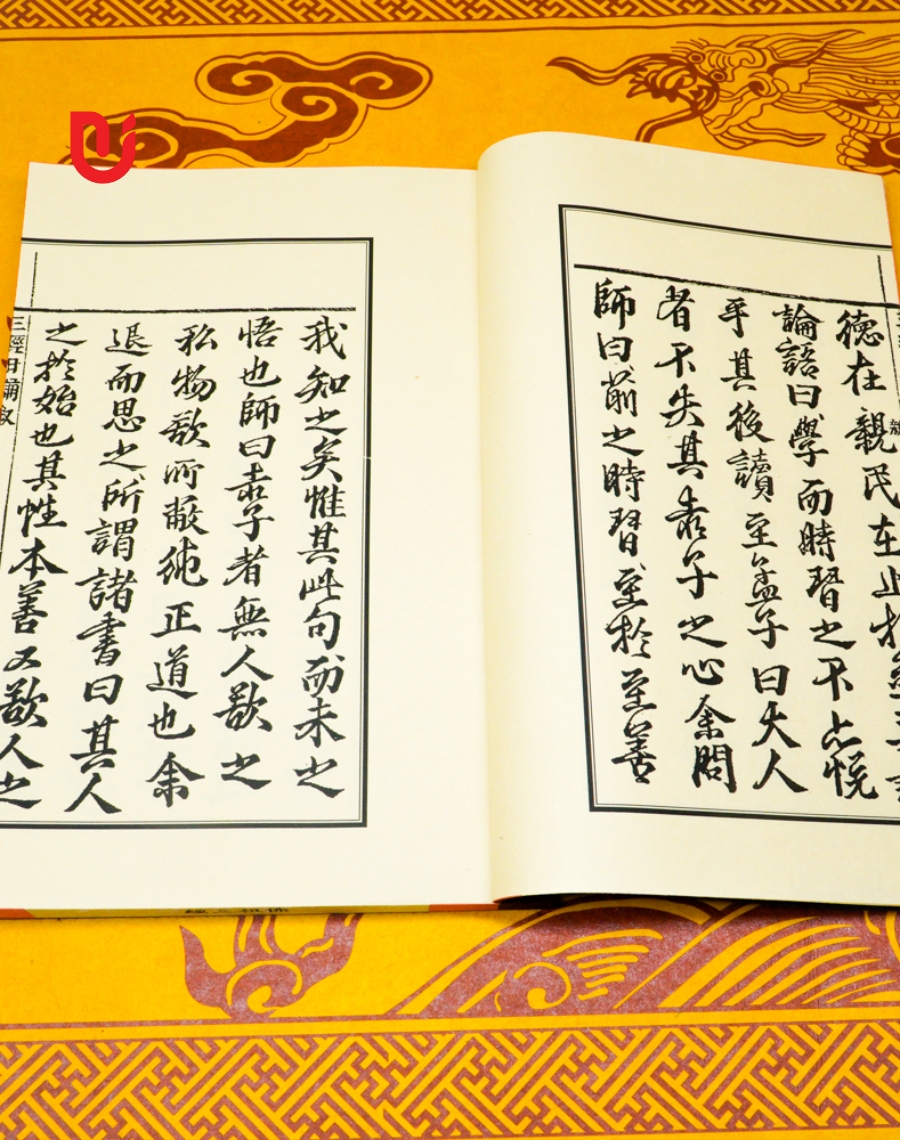 德在親民在止於
論語曰學而時習之不亦悅
乎其後讀至孟子曰大人
者不失其赤子之心余問
師曰前之時習至於至善
我知之矣惟其此句而未之
悟也師曰赤子者無人欲之
私物欲所蔽純正道也余
退而思之所謂諸書曰其人
之於始也其性本善又欲人之
三經日誦